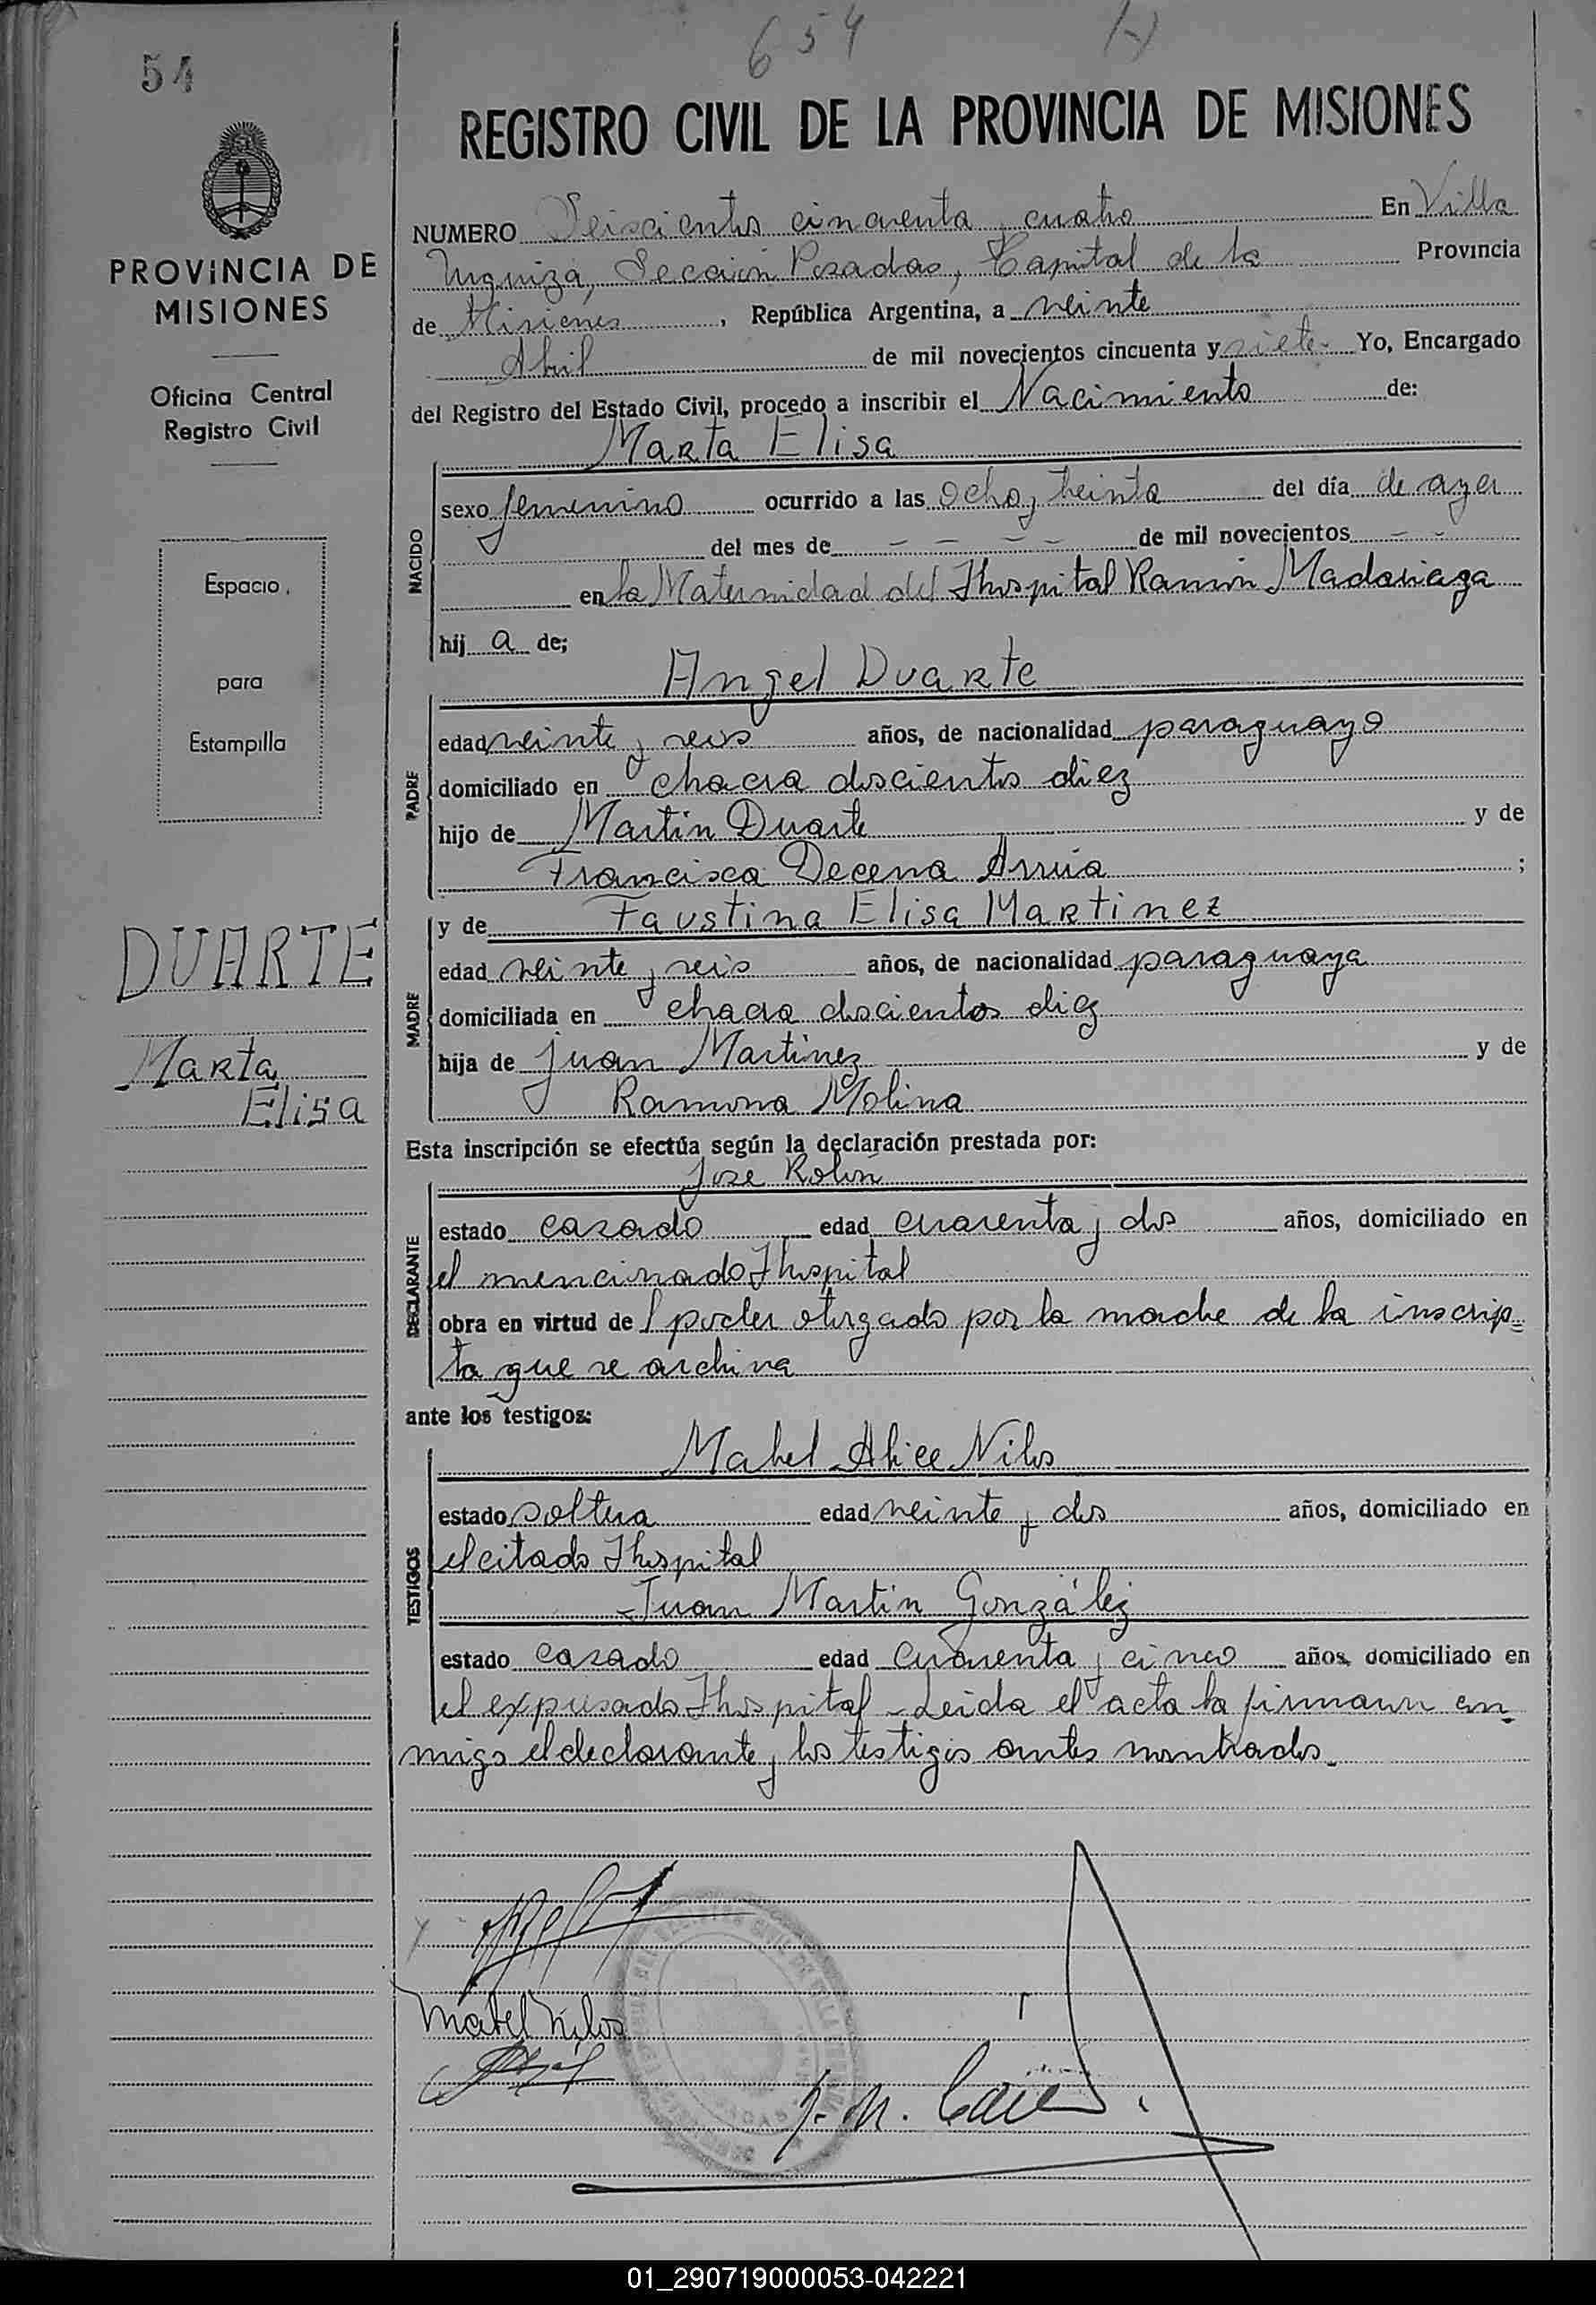 54
654
REGISTRO CIVIL DE LA PROVINCIA DE MISIONES
PROVINCIA DE
MISIONES
Oficina Central
Registro Civil
Espacio
para
Estampilla
DUARTE
Marta
Elisa
NUMERO Seiscientos cincuenta y cuatro En Villa
Urquiza, Sección Posadas, Capital de la Provincia
de Misiones, República Argentina, a veinte
Abril de mil novecientos cincuenta y siete Yo, Encargado
del Registro del Estado Civil, procedo a inscribir el Nacimiento de:
Marta Elisa
NACIDO
sexo femenino ocurrido a las ocho y treinta del día de ayer
del mes de - - - - de mil novecientos - -
en la Maternidad del Hospital Ramón Madariaga
hij a de;
Angel Duarte
PADRE
edad veinte y seis años, de nacionalidad paraguayo
domiciliado en chacra doscientos diez
hijo de Martin Duarte y de
Francisca Decena Arrúa ;
MADRE
y de Faustina Elisa Martinez
edad veinte y seis años, de nacionalidad paraguaya
domiciliada en chacra doscientos diez
hija de Juan Martinez y de
Ramona Molina
Esta inscripción se efectúa según la declaración prestada por:
Jose Rolón
DECLARANTE
estado casado edad cuarenta y dos años, domiciliado en
el mencionado Hospital
obra en virtud de l poder otorgado por la madre de la inscrip=
ta que se archiva
ante los testigos:
Mabel Alice Nilos
TESTIGOS
estado soltera edad veinte y dos años, domiciliado en
el citado Hospital
Juan Martin González
estado casado edad cuarenta y cinco años, domiciliado en
el expresado Hospital - Leida el acta la firmaron con
migo el declarante y los testigos antes nombrados.
Mabel Nilos
01_290719000053-042221